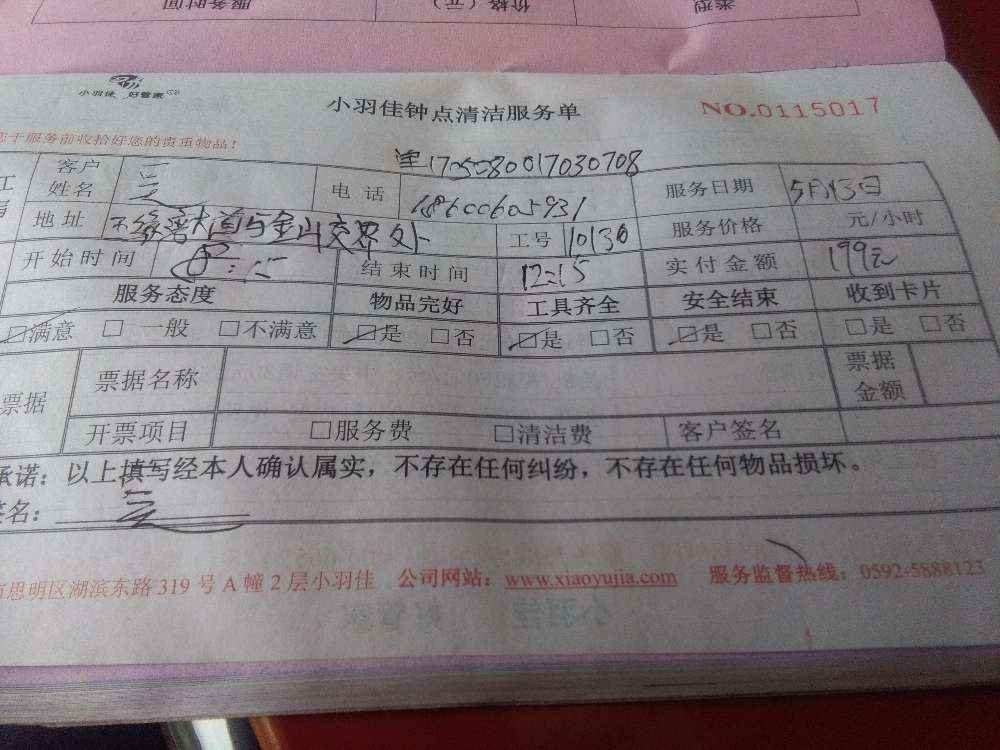 类型 价格（元） 服务时间
小羽佳 好管家
小羽佳钟点清洁服务单 NO.0115017
您于服务前收拾好您的贵重物品！
1705080017030708
客户姓名 电话 18600605931 服务日期 5月13日
地址 大道与金山交界处 工号 10136 服务价格 元/小时
开始时间 结束时间 12:15 实付金额 199元
服务态度 物品完好 工具齐全 安全结束 收到卡片
☑满意 □一般 □不满意 ☑是 □否 ☑是 □否 ☑是 □否 □是 □否
票据 票据名称 票据金额
开票项目 □服务费 □清洁费 客户签名
承诺：以上填写经本人确认属实，不存在任何纠纷，不存在任何物品损坏。
签名：
市思明区湖滨东路 319 号 A 幢 2 层小羽佳 公司网站：www.xiaoyujia.com 服务监督热线：0592-5888123